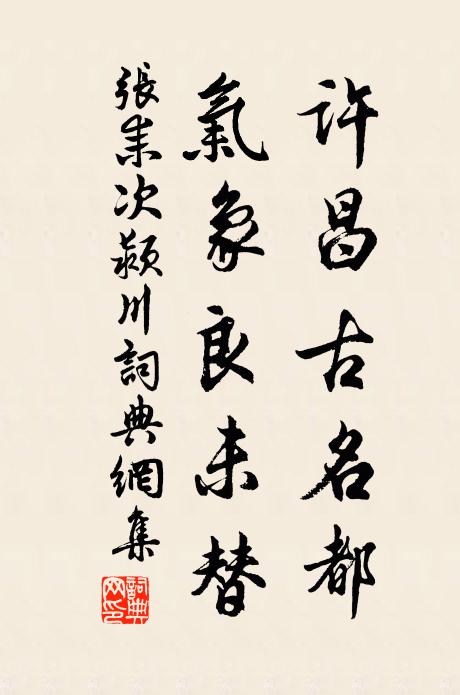 許昌古名都
氣象良未替
張耒次潁川詞典網集
詞典网印